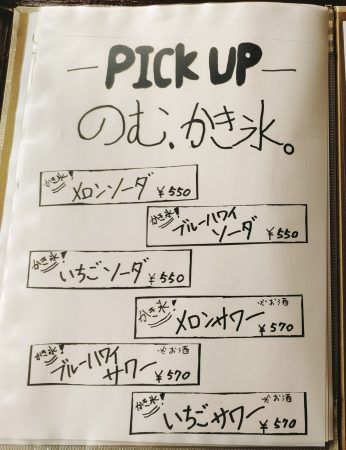 PICK UP
のむ、かき氷。
かき氷!
メロンソーダ ¥550
かき氷!
ブルーハワイ
ソーダ ¥550
かき氷!
いちごソーダ ¥550
※お酒
かき氷!
メロンサワー ¥570
かき氷!
※お酒
ブルーハワイ
サワー ¥570
※お酒
かき氷!
いちごサワー ¥570